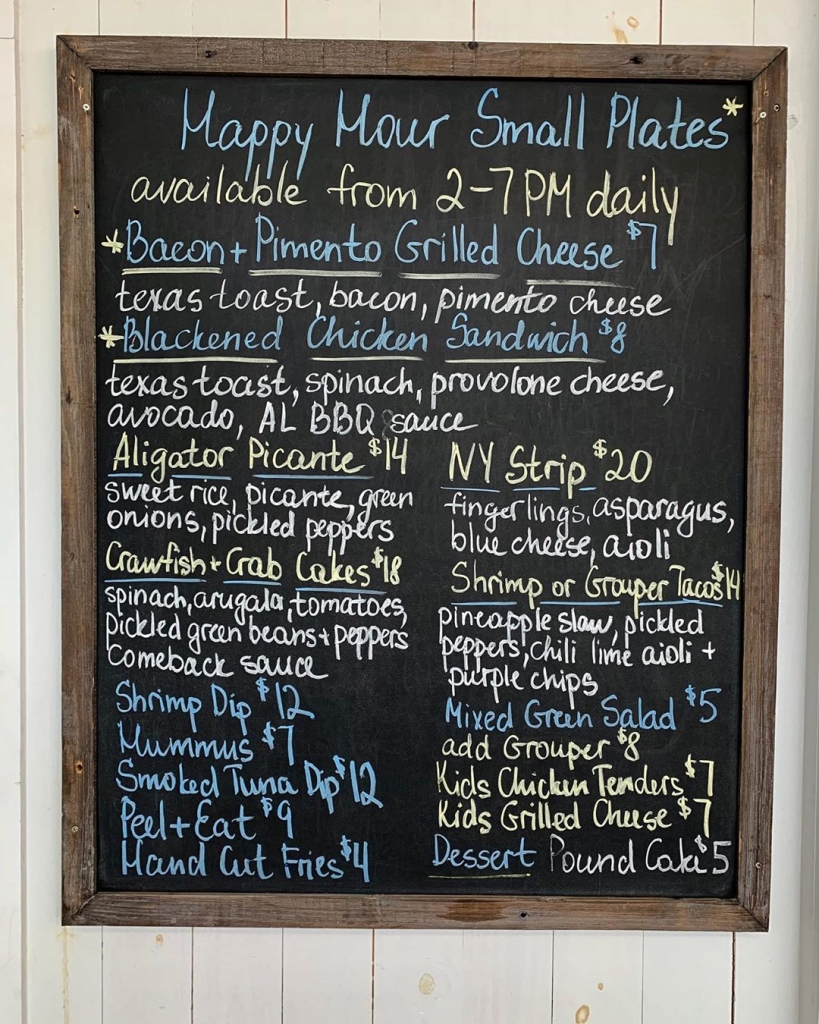 Happy Hour Small Plates*
available from 2-7PM daily
*Bacon + Pimento Grilled Cheese $7
texas toast, bacon, pimento cheese
*Blackened Chicken Sandwich $8
texas toast, spinach, provolone cheese,
avocado, AL BBQ sauce
Aligator Picante $14
sweet rice, picante, green
onions, pickled peppers
Crawfish + Crab Cakes $18
spinach, arugala, tomatoes,
pickled green beans + peppers
comeback sauce
Shrimp Dip $12
Hummus $7
Smoked Tuna Dip $12
Peel + Eat $9
Hand Cut Fries $4
NY Strip $20
fingerlings, asparagus,
blue cheese, aioli
Shrimp or Grouper Tacos $14
pineapple slaw, pickled
peppers, chili lime aioli +
purple chips
Mixed Green Salad $5
add Grouper $8
Kids Chicken Tenders $7
Kids Grilled Cheese $7
Dessert Pound Cake $5